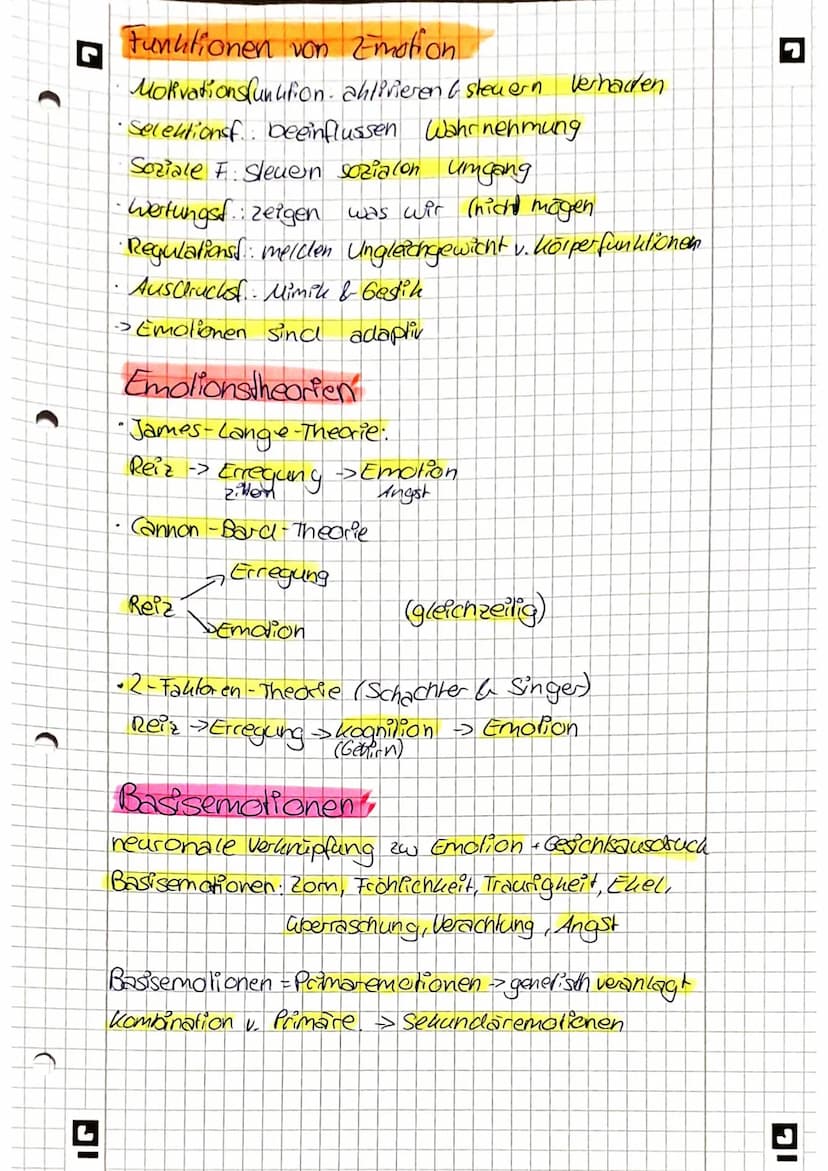 Funktionen von Emotion
· Motivationsfunktion. aktivieren & steuern Verhalten
· Selektionsf.: beeinflussen Wahrnehmung
Soziale F: steuern sozialen Umgang
· Wertungsf.: zeigen was wir (nicht) mögen
· Regulationsf.: melden Ungleichgewicht v. Körperfunktionen
· Ausdrucksf.: Mimik & Gestik
-> Emotionen sind adaptiv
Emotionstheorien
· James-Lange-Theorie:
Reiz -> Erregung -> Emotion
zittern Angst
· Cannon-Bard-Theorie
Erregung
Reiz (gleichzeitig)
Emotion
· 2-Faktoren-Theorie (Schachter & Singer)
Reiz -> Erregung -> Kognition -> Emotion
(Gehirn)
Basisemotionen
neuronale Verknüpfung zw Emotion + Gesichtsausdruck
Basisemotionen: Zorn, Fröhlichkeit, Traurigkeit, Ekel,
Überraschung, Verachtung, Angst
Basisemotionen = Primäremotionen -> genetisch veranlagt
Kombination v. Primäre. -> Sekundäremotionen